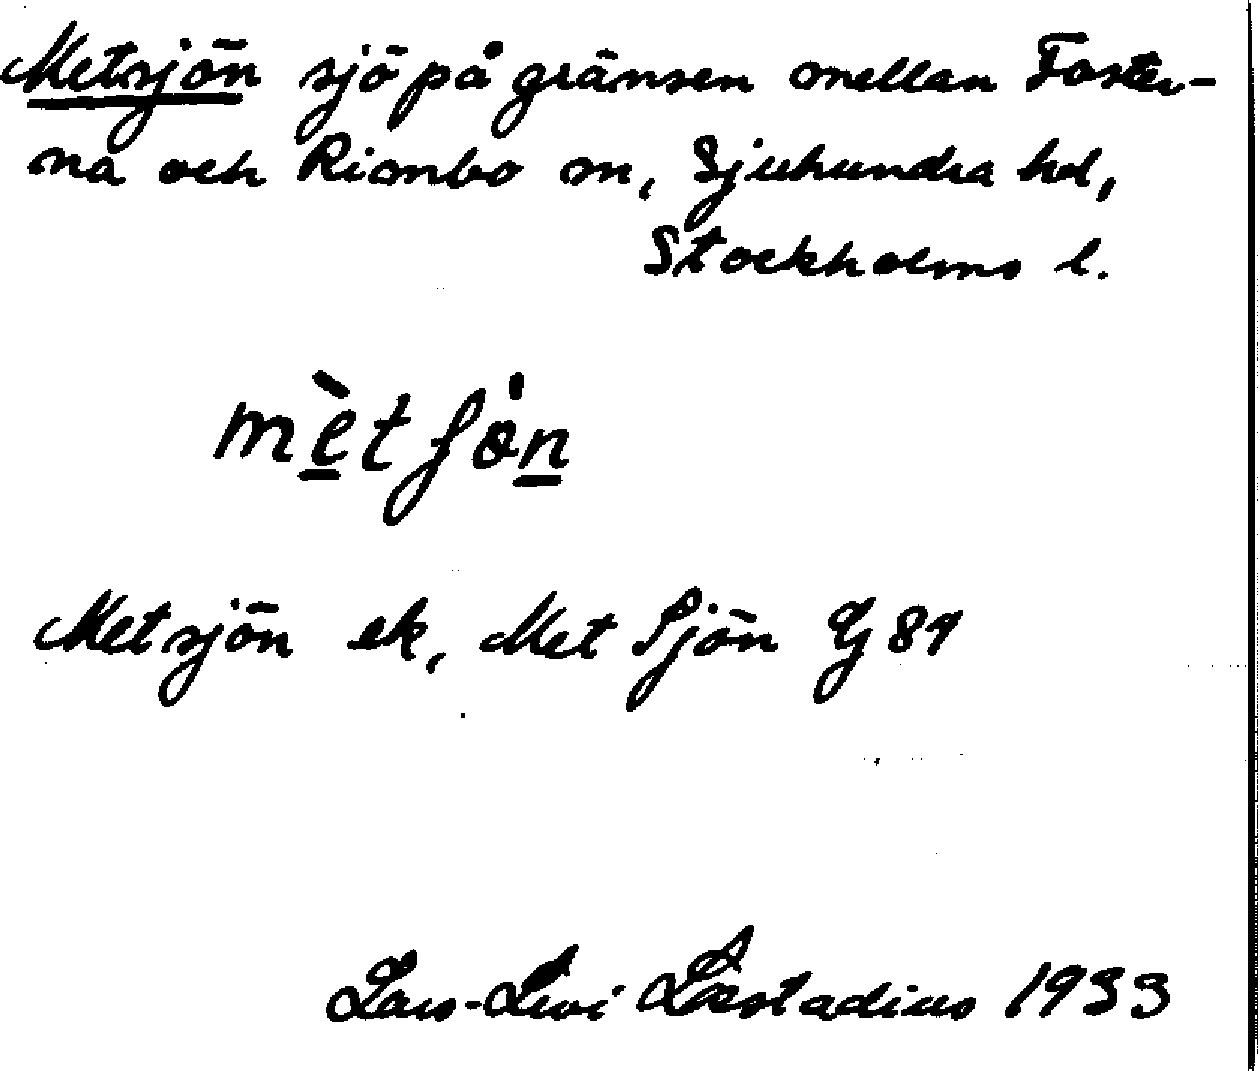 Metsjön sjö på gränsen mellan Faster-
na och Rimbo sn, Sjuhundra hd,
Stockholms l.
mètʃȯn
Metsjön ek, Met Sjön G 89
Lars-Levi Læstadius 1933